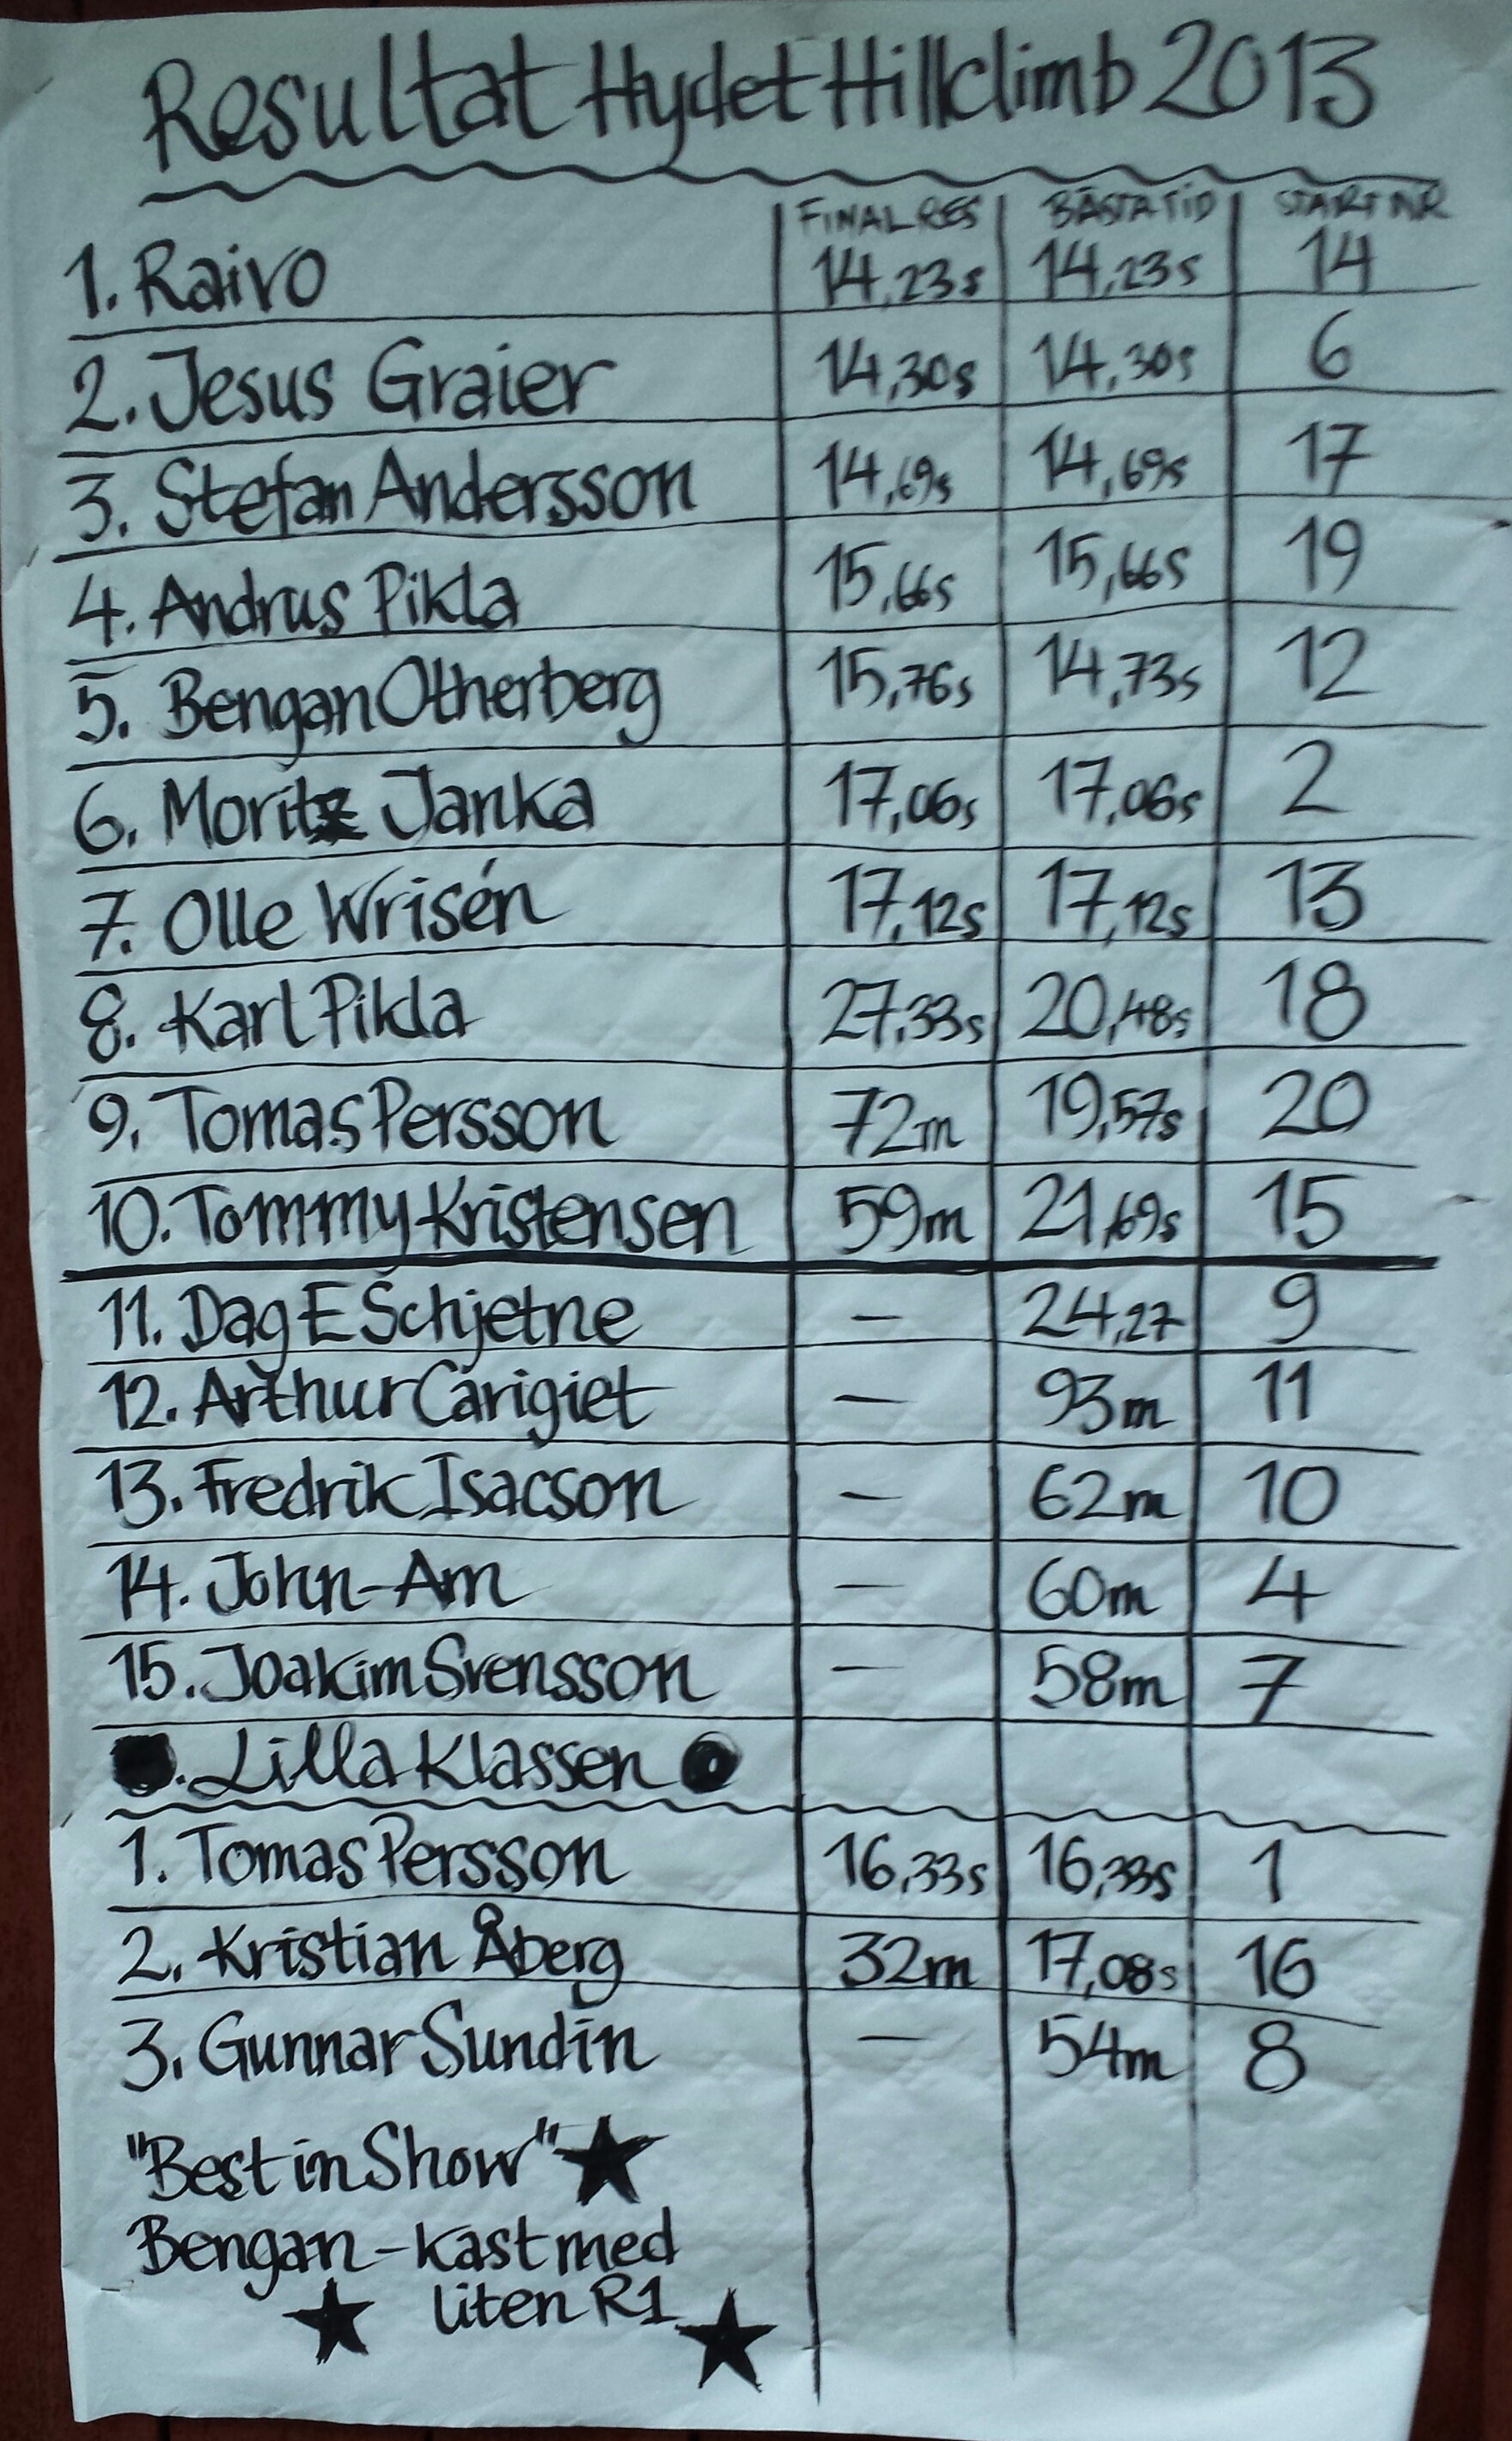 Resultat Hydet Hillclimb 2013
FINAL RES BÄSTA TID START NR
1. Raivo 14,23s 14,23s 14
2. Jesus Graier 14,30s 14,30s 6
3. Stefan Andersson 14,69s 14,69s 17
4. Andrus Pikla 15,66s 15,66s 19
5. Bengan Otherberg 15,76s 14,73s 12
6. Moritz Janka 17,06s 17,06s 2
7. Olle Wrisén 17,12s 17,12s 13
8. Karl Pikla 27,33s 20,48s 18
9. Tomas Persson 72m 19,57s 20
10. Tommy Kristensen 59m 21,69s 15
11. Dag E Schjetne – 24,27 9
12. Arthur Carigiet – 93m 11
13. Fredrik Isacson – 62m 10
14. John-Am – 60m 4
15. Joakim Svensson – 58m 7
Lilla Klassen
1. Tomas Persson 16,33s 16,33s 1
2. Kristian Åberg 32m 17,08s 16
3. Gunnar Sundin – 54m 8
"Best in Show"
Bengan – kast med
liten R1